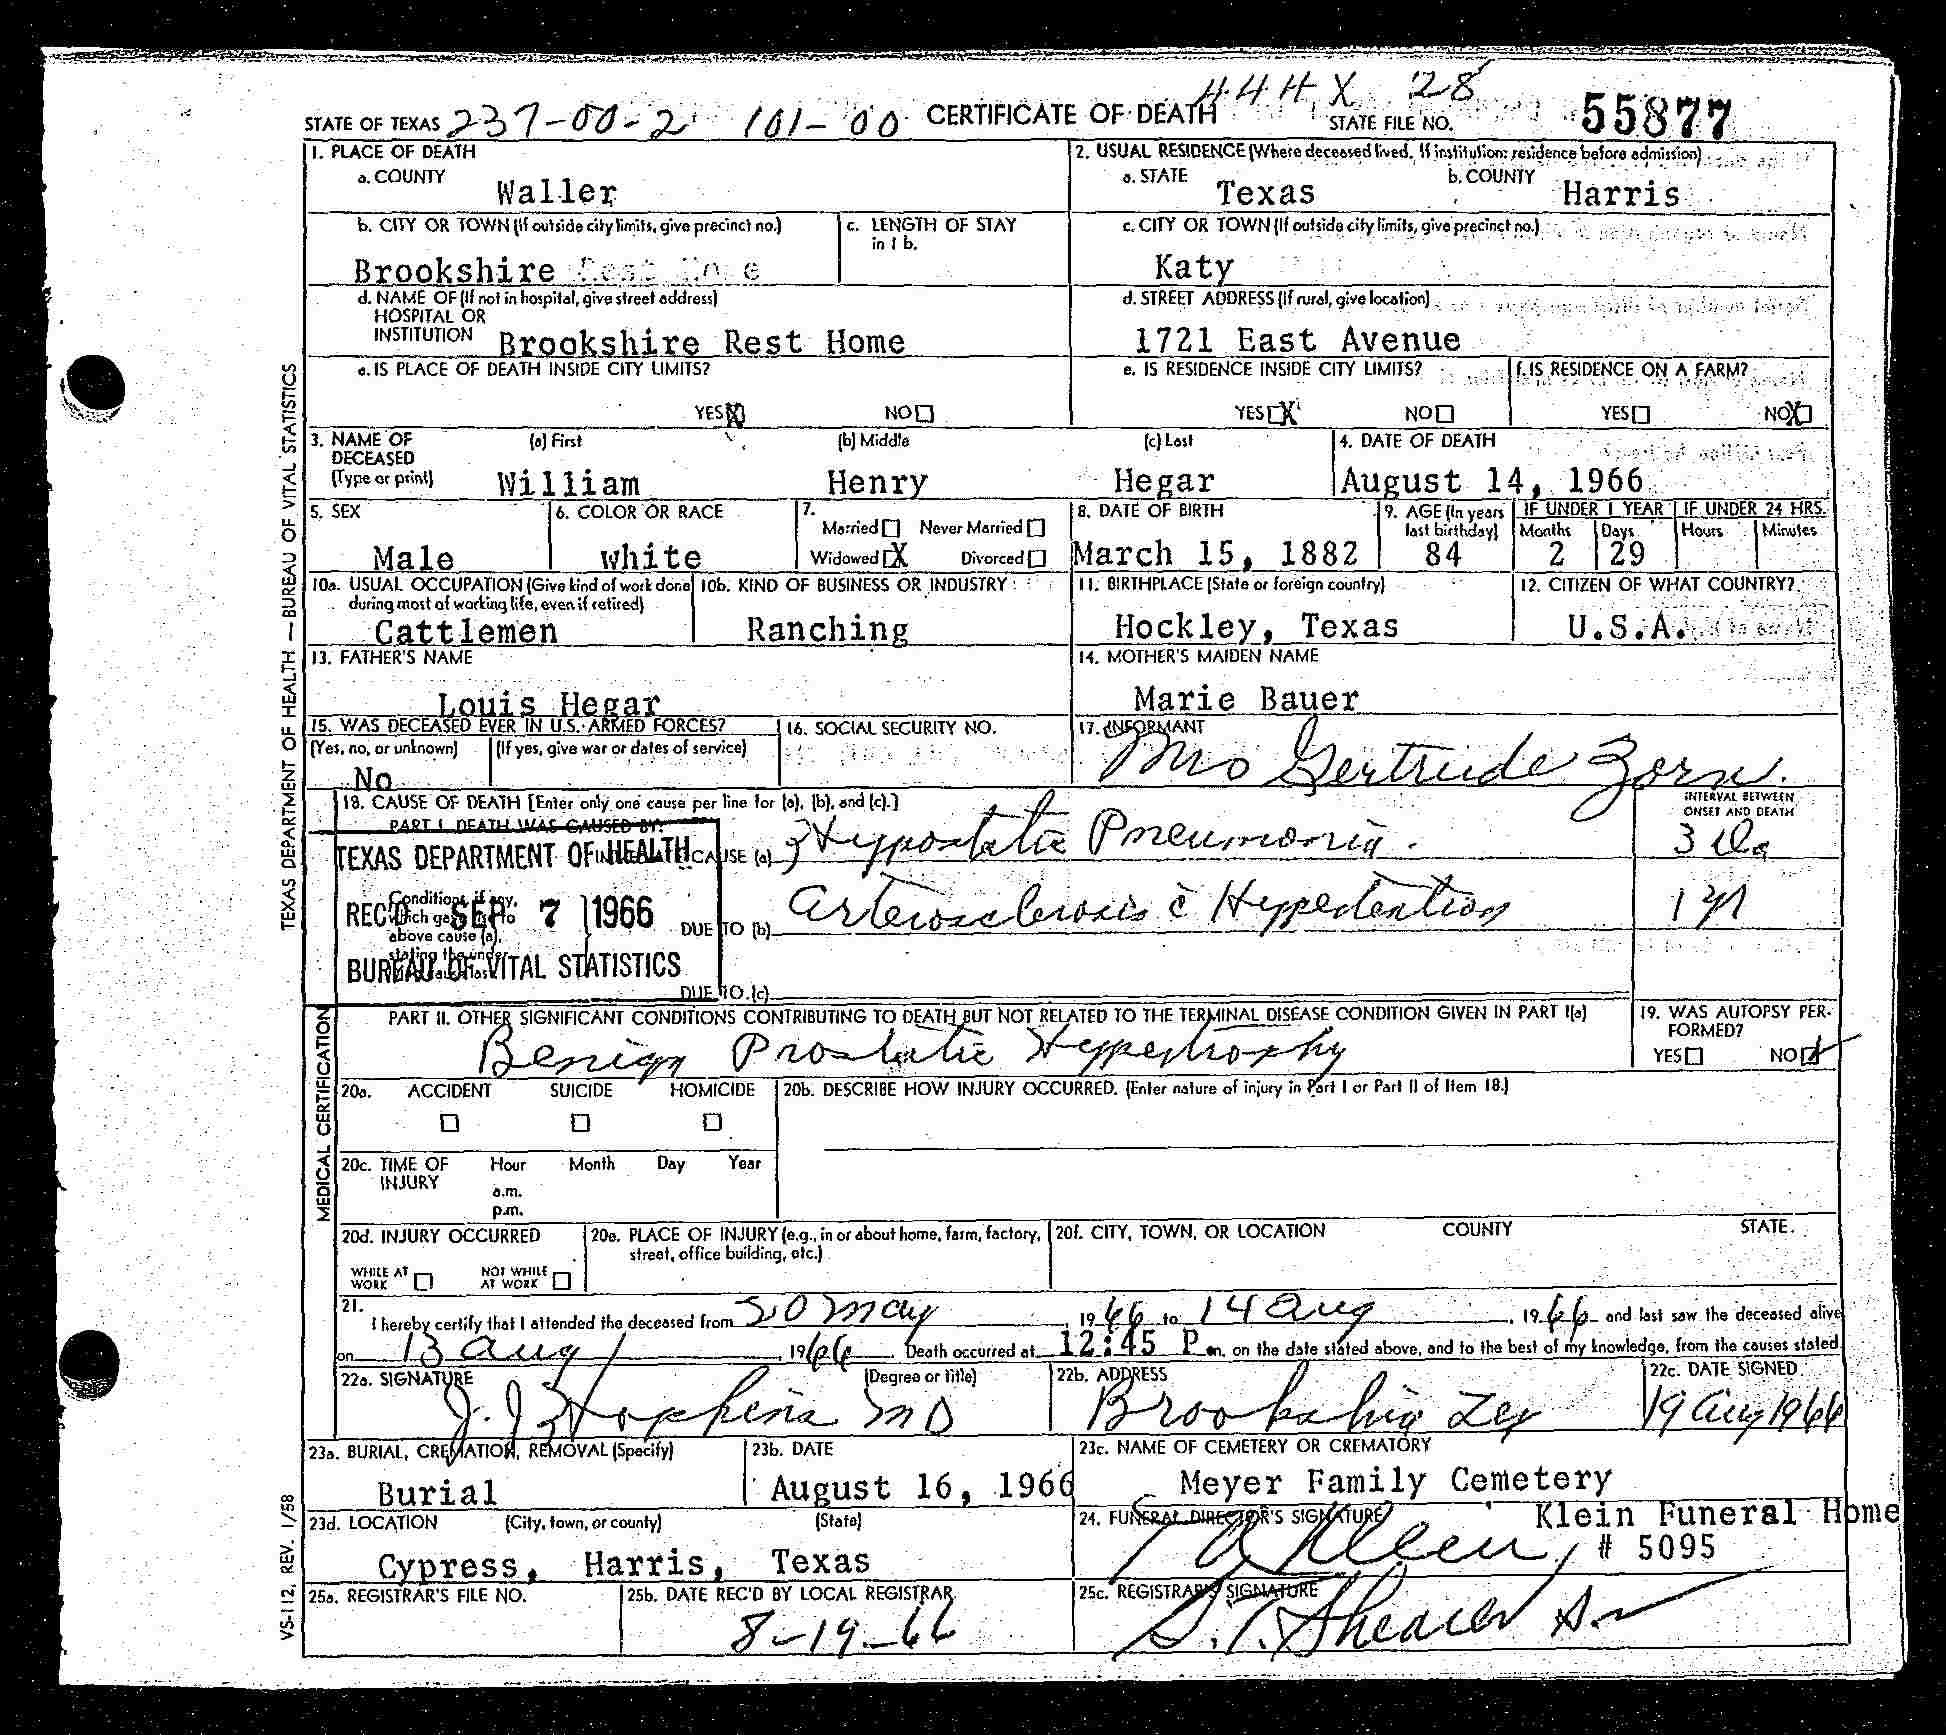 444X 28
STATE OF TEXAS 237-00-2 101-00 CERTIFICATE OF DEATH STATE FILE NO. 55877
1. PLACE OF DEATH
a. COUNTY Waller
2. USUAL RESIDENCE (Where deceased lived. If institution: residence before admission)
a. STATE Texas b. COUNTY Harris
b. CITY OR TOWN (If outside city limits, give precinct no.) Brookshire
c. LENGTH OF STAY in 1 b.
c. CITY OR TOWN (If outside city limits, give precinct no.) Katy
d. NAME OF (If not in hospital, give street address)
HOSPITAL OR
INSTITUTION Brookshire Rest Home
d. STREET ADDRESS (If rural, give location)
1721 East Avenue
e. IS PLACE OF DEATH INSIDE CITY LIMITS?
YES X NO
e. IS RESIDENCE INSIDE CITY LIMITS?
YES X NO
f. IS RESIDENCE ON A FARM?
YES NO X
3. NAME OF DECEASED (Type or print)
(a) First (b) Middle (c) Last
William Henry Hegar
4. DATE OF DEATH
August 14, 1966
5. SEX
Male
6. COLOR OR RACE
white
7. Married Never Married
Widowed X Divorced
8. DATE OF BIRTH
March 15, 1882
9. AGE (In years last birthday)
84
IF UNDER 1 YEAR
Months Days
2 29
IF UNDER 24 HRS.
Hours Minutes
10a. USUAL OCCUPATION (Give kind of work done during most of working life, even if retired)
Cattlemen
10b. KIND OF BUSINESS OR INDUSTRY
Ranching
11. BIRTHPLACE (State or foreign country)
Hockley, Texas
12. CITIZEN OF WHAT COUNTRY?
U.S.A.
13. FATHER'S NAME
Louis Hegar
14. MOTHER'S MAIDEN NAME
Marie Bauer
15. WAS DECEASED EVER IN U.S. ARMED FORCES?
(Yes, no, or unknown) (If yes, give war or dates of service)
No
16. SOCIAL SECURITY NO.
17. INFORMANT
Mrs Gertrude Zorn.
18. CAUSE OF DEATH [Enter only one cause per line for (a), (b), and (c).]
PART I. DEATH WAS CAUSED BY:
INTERVAL BETWEEN
ONSET AND DEATH
CAUSE (a) Hypostatic Pneumonia. 3 Da
TEXAS DEPARTMENT OF HEALTH
REC'D SEP 7 1966
BUREAU OF VITAL STATISTICS
Conditions, if any, which gave rise to above cause (a), stating the under-
DUE TO (b) Arteriosclerosis c̄ Hypertention 1 yr
DUE TO (c)
PART II. OTHER SIGNIFICANT CONDITIONS CONTRIBUTING TO DEATH BUT NOT RELATED TO THE TERMINAL DISEASE CONDITION GIVEN IN PART I(a)
Benign Prostatic Hypertrophy
19. WAS AUTOPSY PERFORMED?
YES NO
20a. ACCIDENT SUICIDE HOMICIDE
20b. DESCRIBE HOW INJURY OCCURRED. (Enter nature of injury in Part I or Part II of Item 18.)
20c. TIME OF INJURY
Hour Month Day Year
a.m.
p.m.
20d. INJURY OCCURRED
WHILE AT WORK NOT WHILE AT WORK
20e. PLACE OF INJURY (e.g., in or about home, farm, factory, street, office building, etc.)
20f. CITY, TOWN, OR LOCATION COUNTY STATE
21.
I hereby certify that I attended the deceased from 20 May, 1966 to 14 Aug, 1966 and last saw the deceased alive
on 13 Aug, 1966. Death occurred at 12:45 P.m. on the date stated above, and to the best of my knowledge, from the causes stated.
22a. SIGNATURE (Degree or title)
J. J. Hopkins MD
22b. ADDRESS
Brookshire Tex
22c. DATE SIGNED
19 Aug 1966
23a. BURIAL, CREMATION, REMOVAL (Specify)
Burial
23b. DATE
August 16, 1966
23c. NAME OF CEMETERY OR CREMATORY
Meyer Family Cemetery
23d. LOCATION (City, town, or county) (State)
Cypress, Harris, Texas
24. FUNERAL DIRECTOR'S SIGNATURE
Klein Klein Funeral Home
# 5095
25a. REGISTRAR'S FILE NO.
25b. DATE REC'D BY LOCAL REGISTRAR
8-19-66
25c. REGISTRAR'S SIGNATURE
S.T. Shearer Sr
TEXAS DEPARTMENT OF HEALTH — BUREAU OF VITAL STATISTICS
MEDICAL CERTIFICATION
VS-112, REV. 1/58